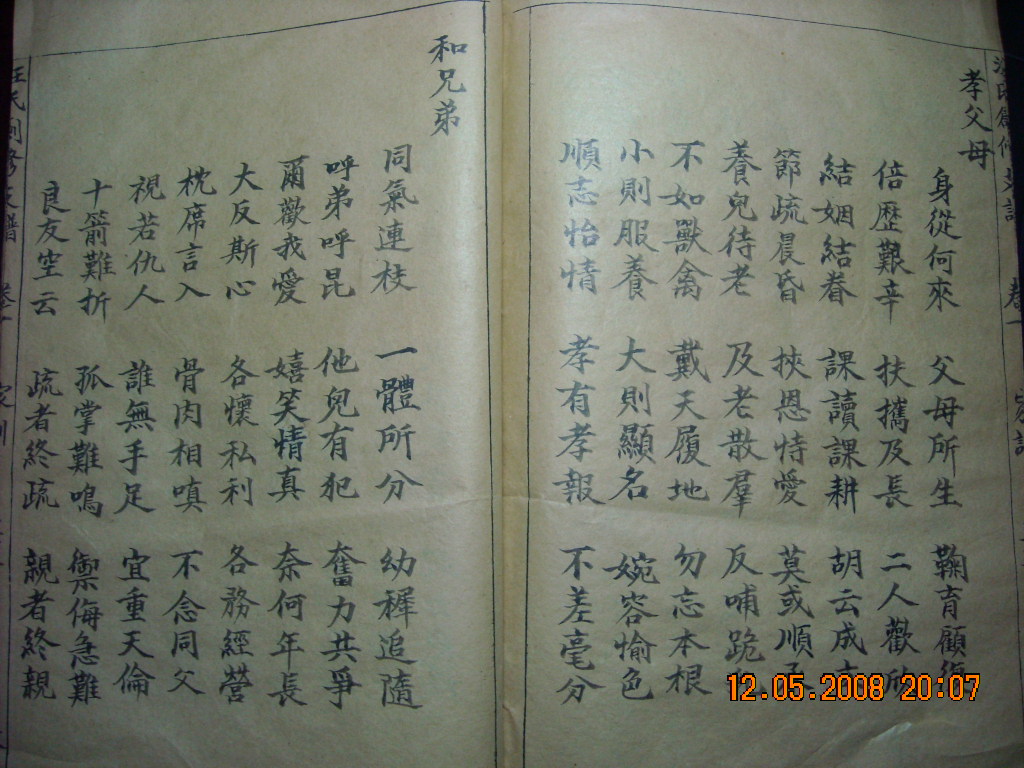 孝父母
身從何來 父母所生 鞠育顧復
倍歷艱辛 扶攜及長 二人歡欣
結姻結眷 課讀課耕 胡云成
節疏晨昏 挾恩恃愛 莫或順
養兒待老 及老散羣 反哺跪
不如獸禽 戴天履地 勿忘本根
小則服養 大則顯名 婉容愉色
順志怡情 孝有孝報 不差毫分
和兄弟
同氣連枝 一體所分 幼穉追隨
呼弟呼昆 他兒有犯 奮力共爭
爾歡我愛 嬉笑情真 奈何年長
大反斯心 各懷私利 各務經營
枕席言入 骨肉相嗔 不念同父
視若仇人 誰無手足 宜重天倫
十箭難折 孤掌難鳴 禦侮急難
良友空云 疏者終疏 親者終親
汪氏創修支譜
12.05.2008 20:07